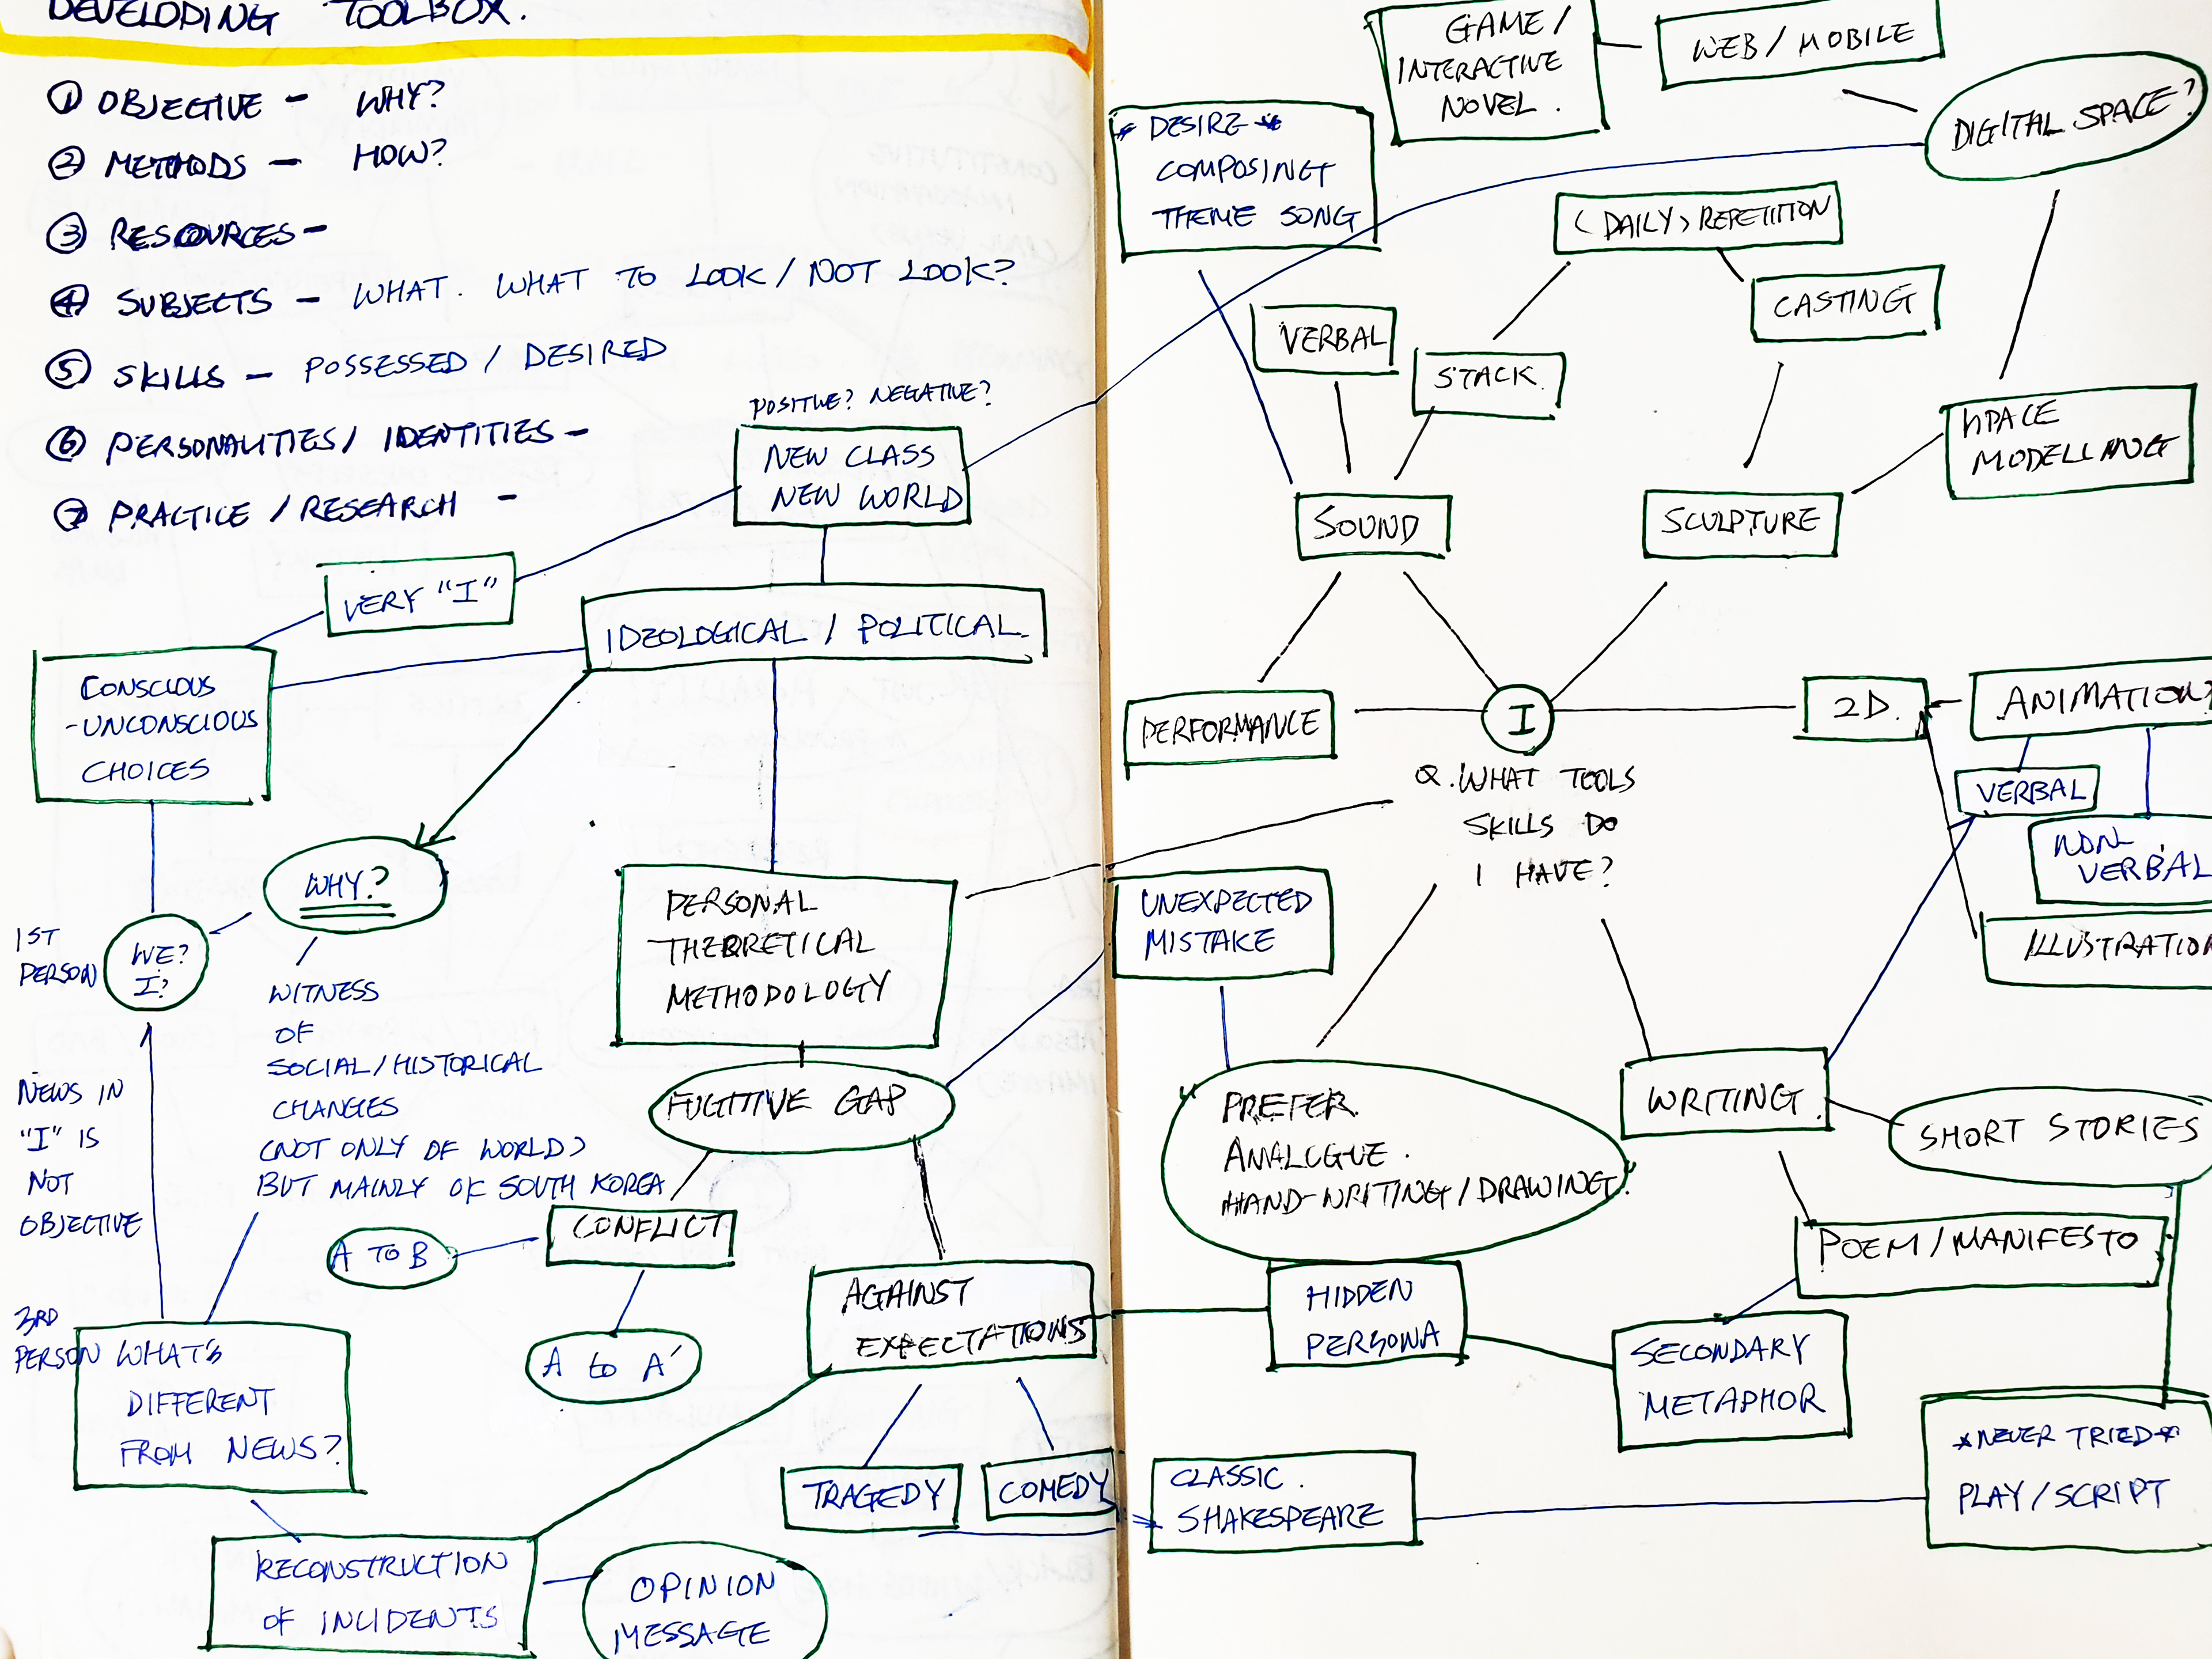 DEVELOPING TOOLBOX.
① OBJECTIVE - WHY?
② METHODS - HOW?
③ RESOURCES -
④ SUBJECTS - WHAT. WHAT TO LOOK / NOT LOOK?
⑤ SKILLS - POSSESSED / DESIRED
⑥ PERSONALITIES / IDENTITIES -
⑦ PRACTICE / RESEARCH -
POSITIVE? NEGATIVE?
NEW CLASS
NEW WORLD
VERY "I"
IDEOLOGICAL / POLITICAL
CONSCIOUS
-UNCONSCIOUS
CHOICES
WHY?
1ST
PERSON
WE?
I?
WITNESS
OF
SOCIAL/HISTORICAL
CHANGES
(NOT ONLY OF WORLD)
BUT MAINLY OF SOUTH KOREA
NEWS IN
"I" IS
NOT
OBJECTIVE
PERSONAL
THEORETICAL
METHODOLOGY
FUGITIVE GAP
A TO B
CONFLICT
A to A'
AGAINST
EXPECTATIONS
3RD
PERSON
WHAT'S
DIFFERENT
FROM NEWS?
TRAGEDY
COMEDY
RECONSTRUCTION
OF INCIDENTS
OPINION
MESSAGE
GAME /
INTERACTIVE
NOVEL.
WEB / MOBILE
DIGITAL SPACE?
* DESIRE *
COMPOSING
THEME SONG
(DAILY) REPETITION
CASTING
VERBAL
STACK.
SPACE
MODELLING
SOUND
SCULPTURE
PERFORMANCE
I
2D.
ANIMATION?
VERBAL
NON
VERBAL
ILLUSTRATION
Q. WHAT TOOLS
SKILLS DO
I HAVE?
UNEXPECTED
MISTAKE
PREFER.
ANALOGUE.
HAND-WRITING / DRAWING.
WRITING.
SHORT STORIES
POEM / MANIFESTO
HIDDEN
PERSONA
SECONDARY
METAPHOR
*NEVER TRIED*
PLAY / SCRIPT
CLASSIC.
SHAKESPEARE